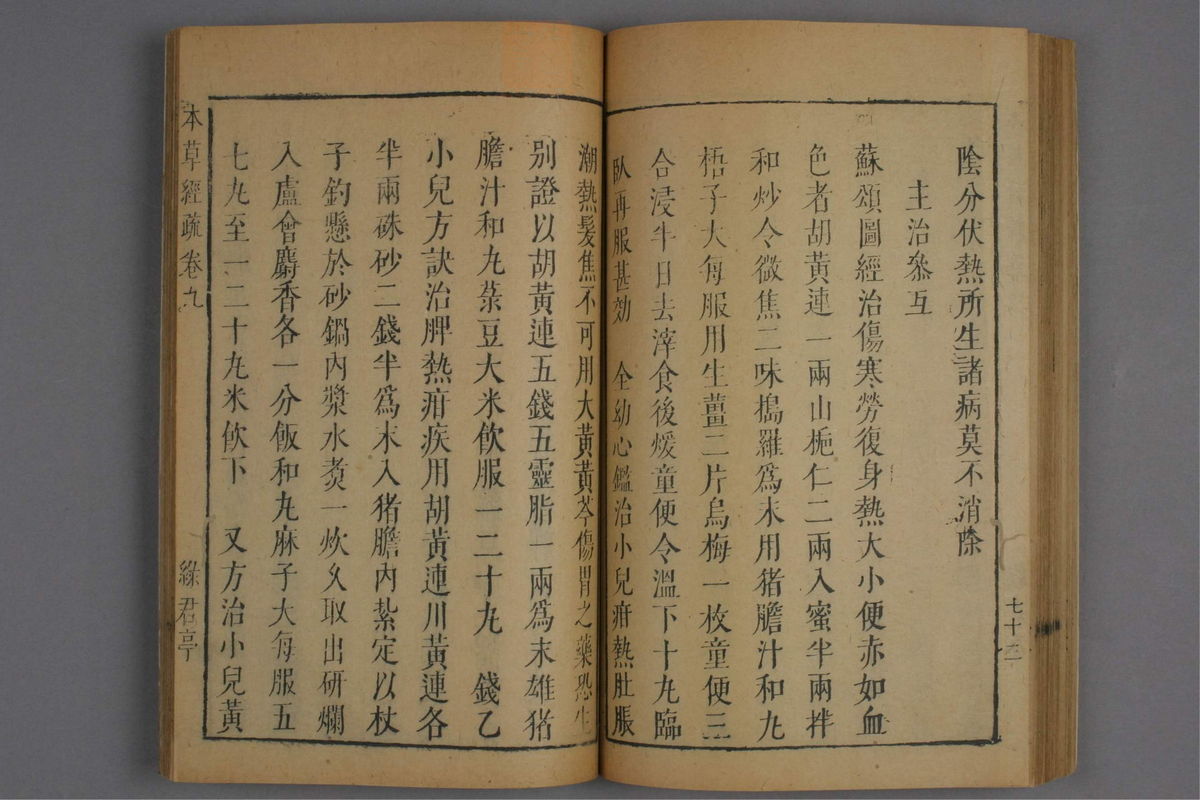 陰分伏熱所生諸病莫不消除
主治參互
蘇頌圖經治傷寒勞復身熱大小便赤如血
色者胡黃連一兩山梔仁二兩入蜜半兩拌
和炒令微焦二味搗羅爲末用猪膽汁和丸
梧子大每服用生薑二片烏梅一枚童便三
合浸半日去滓食後煖童便令溫下十丸臨
臥再服甚効　全幼心鑑治小兒疳熱肚脹
潮熱髮焦不可用大黃黃芩傷胃之藥恐生
别證以胡黃連五錢五靈脂一兩爲末雄猪
膽汁和丸菉豆大米飲服一二十丸　錢乙
小兒方訣治脾熱疳疾用胡黃連川黃連各
半兩硃砂二錢半爲末入猪膽內紮定以杖
子釣懸於砂鍋內漿水煑一炊久取出研爛
入盧會麝香各一分飯和丸麻子大每服五
七丸至一二十丸米飲下　又方治小兒黃
本草經疏 卷九
綠君亭
七十